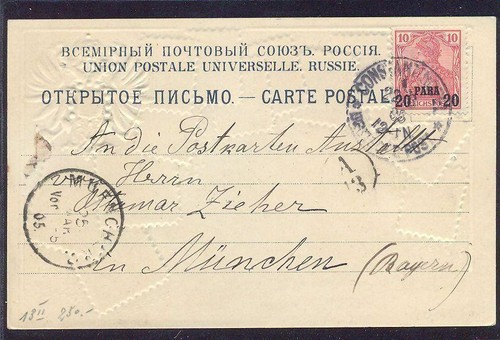 ВСЕМІРНЫЙ ПОЧТОВЫЙ СОЮЗЪ. РОССІЯ.
UNION POSTALE UNIVERSELLE. RUSSIE.
ОТКРЫТОЕ ПИСЬМО. — CARTE POSTALE
10 10
20 PARA 20
CONSTANTIN
An die Postkarten Anstalt
von Herrn
Ottmar Zieher
in München
(Bayern)
1
13
MUENCHEN
Vor.
05.
13 II 250.-